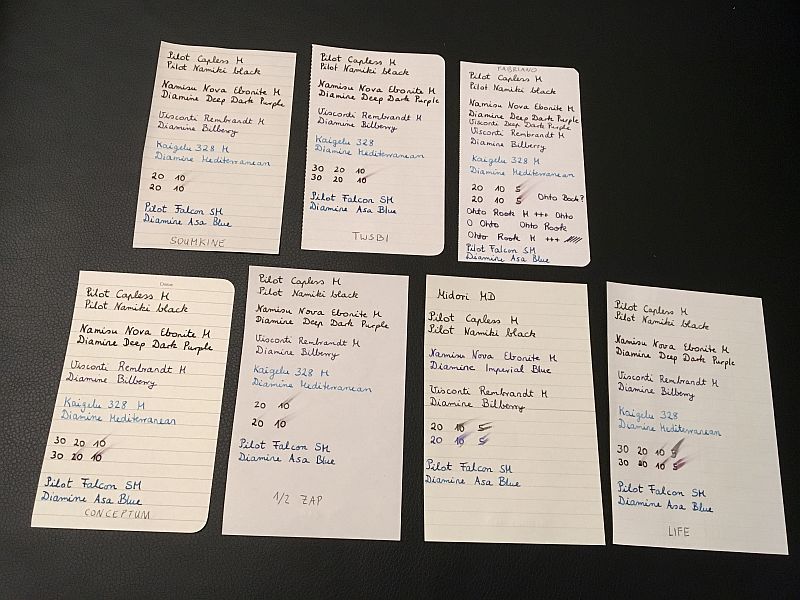 Pilot Capless M
Pilot Namiki black
Namisu Nova Ebonite M
Diamine Deep Dark Purple
Visconti Rembrandt M
Diamine Bilberry
Kaigelu 328 M
Diamine Mediterranean
20 10
20 10
Pilot Falcon SM
Diamine Asa Blue
SOUMKINE
Pilot Capless M
Pilot Namiki black
Namisu Nova Ebonite M
Diamine Deep Dark Purple
Visconti Rembrandt M
Diamine Bilberry
Kaigelu 328
Diamine Mediterranean
30 20 10
30 20 10
Pilot Falcon SM
Diamine Asa Blue
TWSBI
FABRIANO
Pilot Capless M
Pilot Namiki black
Namisu Nova Ebonite M
Diamine Deep Dark Purple
Visconti Deep Dark Purple
Visconti Rembrandt M
Diamine Bilberry
Kaigelu 328 M
Diamine Mediterranean
20 10 5
20 10 5 Ohto Book?
Ohto Rook M +++ Ohto
O Ohto Ohto Rook
Ohto Rook M +++
Pilot Falcon SM
Diamine Asa Blue
Pilot Capless M
Pilot Namiki black
Namisu Nova Ebonite M
Diamine Deep Dark Purple
Visconti Rembrandt M
Diamine Bilberry
Kaigelu 328 M
Diamine Mediterranean
30 20 10
30 20 10
Pilot Falcon SM
Diamine Asa Blue
CONCEPTUM
Pilot Capless M
Pilot Namiki black
Namisu Nova Ebonite M
Diamine Deep Dark Purple
Visconti Rembrandt M
Diamine Bilberry
Kaigelu 328 M
Diamine Mediterranean
20 10
20 10
Pilot Falcon SM
Diamine Asa Blue
1/2 ZAP
Midori MD
Pilot Capless M
Pilot Namiki black
Namisu Nova Ebonite M
Diamine Imperial Blue
Visconti Rembrandt M
Diamine Bilberry
20 10 5
20 10 5
Pilot Falcon SM
Diamine Asa Blue
Pilot Capless M
Pilot Namiki black
Namisu Nova Ebonite M
Diamine Deep Dark Purple
Visconti Rembrandt M
Diamine Bilberry
Kaigelu 328
Diamine Mediterranean
30 20 10 5
30 20 10 5
Pilot Falcon SM
Diamine Asa Blue
LIFE